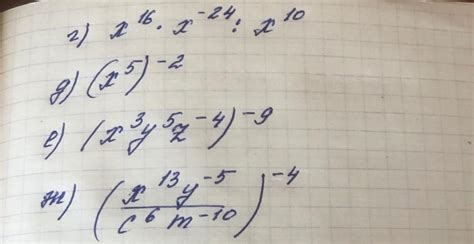 г) x^16 · x^-24 : x^10
д) (x^5)^-2
е) (x^3y^5z^-4)^-9
ж) (x^13y^-5 / c^6m^-10)^-4